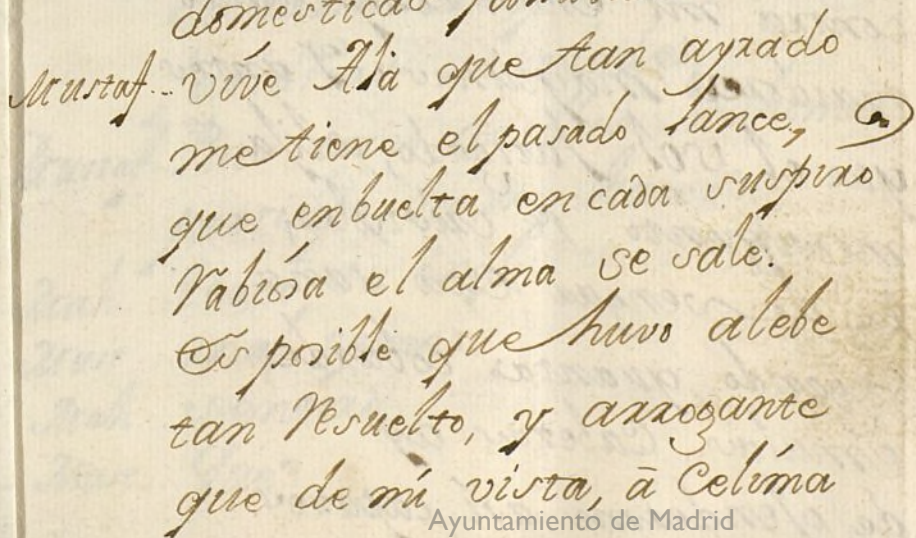 domesticas
Mustaf.. vive Alá que tan ayrado
me tiene el pasado lance,
que enbuelta en cada suspiro
rabiosa el alma se sale.
Es posible que huvo alebe
tan resuelto, y arrogante
que de mi vista, á Celima
Ayuntamiento de Madrid